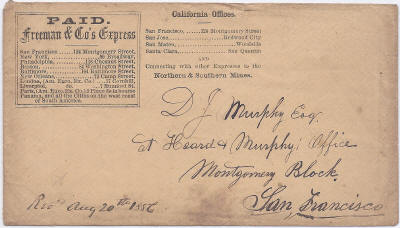 PAID.
Freeman & Co's Express
San Francisco, 124 Montgomery Street,
New York, 59 Broadway,
Philadelphia, 116 Chesnut Street,
Boston, 84 Washington Street,
Baltimore, 164 Baltimore Street,
New Orleans, 72 Camp Street,
London, (Am. Eur. Ex. Co.) 17 Cornhill,
Liverpool, do. 7 Rumford St.
Paris, (Am. Euro. Ex. Co.) 8 Place de la bourse
Panama, and all the Cities on the west coast
of South America.
California Offices.
San Francisco, 124 Montgomery Street
San Jose, Redwood City
San Mateo, Woodside
Santa Clara, San Quentin
AND
Connecting with other Expresses to the
Northern & Southern Mines.
D J Murphy Esq
at Heard & Murphy's Office
Montgomery Block
San Francisco
Rec'd Aug 20th 1856